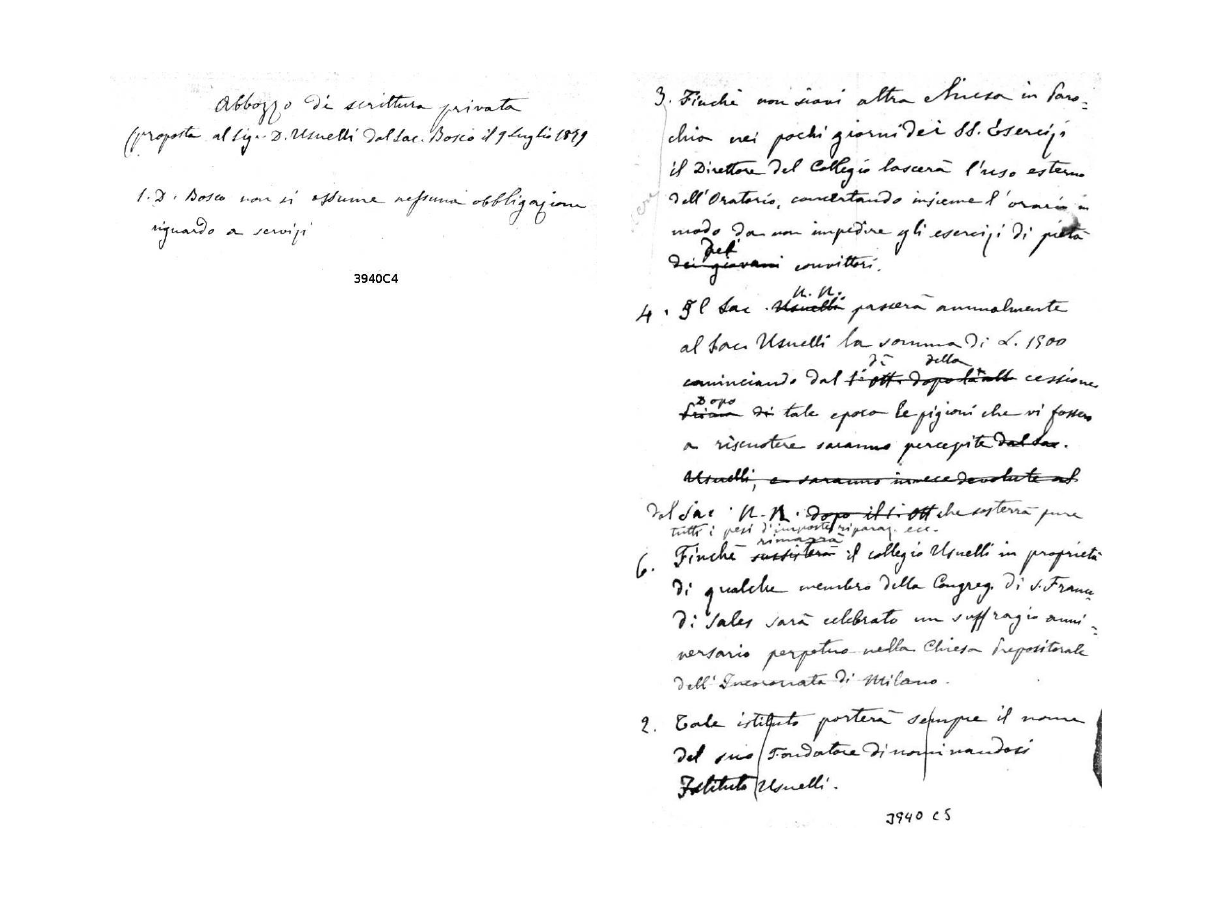 Abbozzo di scrittura privata
(proposta al Sig. D. Usuelli dal Sac. Bosco il 9 Luglio 1879
1. D. Bosco non si assume nessuna obbligazione
riguardo a servizi
3940C4
3. Finchè non siavi altra Chiesa in Paro=
chia nei pochi giorni dei SS. Esercizi
il Direttore del Collegio lascerà l'uso esterno
dell'Oratorio, concertando insieme l'orario in
modo da non impedire gli esercizi di pietà
dei
dei giovani convittori.
N. N.
4. Il Sac. Usuelli passerà annualmente
al Sac. Usuelli la somma di L. 1500
di della
cominciando dal 1° ott. dopo la cessione
Dopo
di tale epoca le pigioni che vi fossero
a riscuotere saranno percepite dal Sac.
Usuelli, e saranno invece devolute al
dal Sac. N. N. dopo il 1° ott che sosterrà pure
tutti i pesi d'imposte riparaz. ecc.
rimarrà
6. Finchè sussisterà il collegio Usuelli in proprietà
di qualche membro della Congreg. di S. Franc.
di Sales sarà celebrato un suffragio anni=
versario perpetuo nella Chiesa Prepositorale
dell'Incoronata di Milano.
2. Tale istituto porterà sempre il nome
del suo Fondatore dinominandosi
Istituto Usuelli.
3940 C5